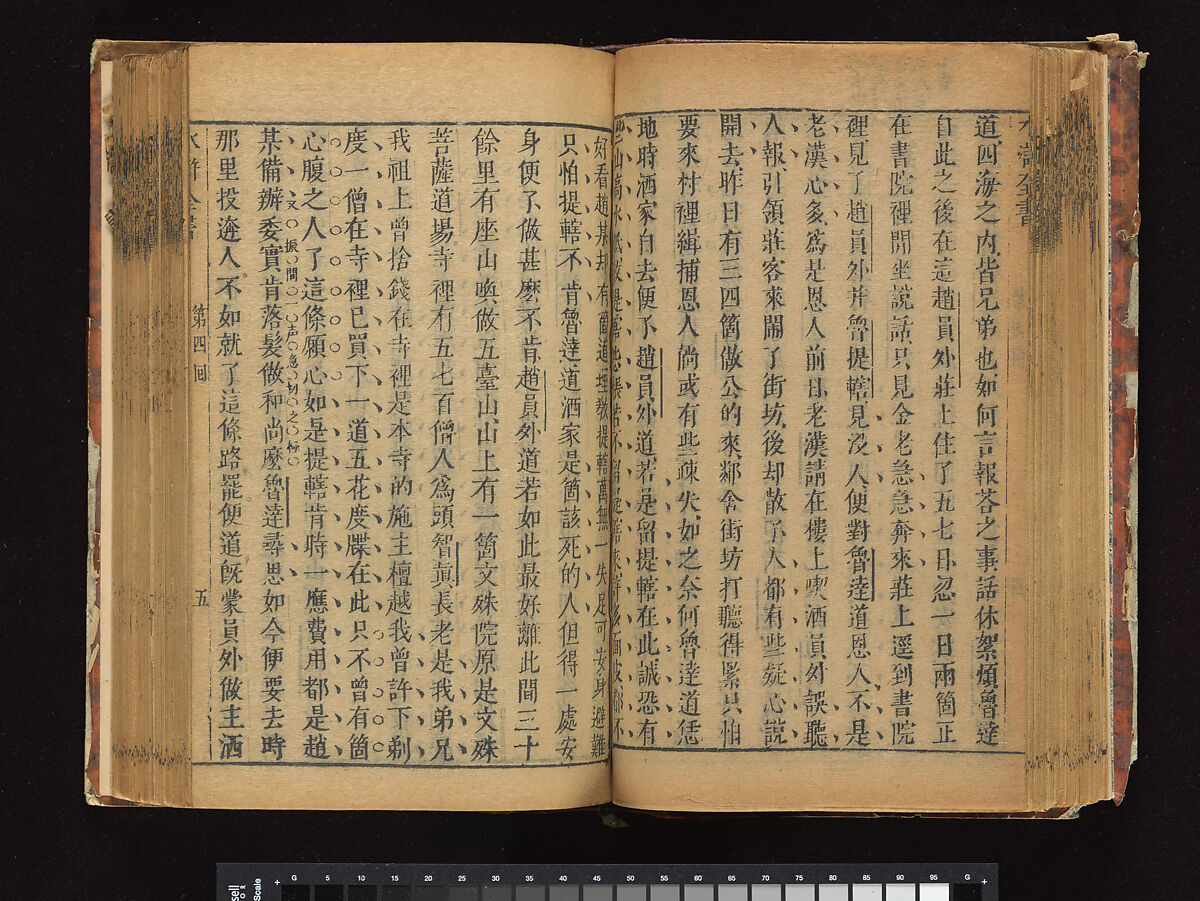 水滸全書
道四海之內皆兄弟也如何言報荅之事話休絮煩魯達
自此之後在這趙員外莊上住了五七日忽一日兩箇正
在書院裡閒坐說話只見金老急急奔來莊上逕到書院
裡見了趙員外并魯提轄見沒人便對魯達道恩人不是
老漢心多爲是恩人前日老漢請在樓上喫酒員外誤聽
人報引領莊客來鬧了街坊後却散了人都有些疑心說
開去昨日有三四箇做公的來鄰舍街坊打聽得緊只怕
要來村裡緝捕恩人倘或有些疎失如之奈何魯達道恁
地時洒家自去便了趙員外道若是留提轄在此誠恐有
些山高水低致提轄怨悵若不留提轄來許多面皮都不
好看趙某却有箇道理教提轄萬無一失足可安身避難
只怕提轄不肯魯達道洒家是箇該死的人但得一處安
身便了做甚麽不肯趙員外道若如此最好離此間三十
餘里有座山喚做五臺山山上有一箇文殊院原是文殊
菩薩道場寺裡有五七百僧人爲頭智眞長老是我弟兄
我祖上曾捨錢在寺裡是本寺的施主檀越我曾許下剃
度一僧在寺裡已買下一道五花度牒在此只不曾有箇
心腹之人了這條願心如是提轄肯時一應費用都是趙
某備辦委實肯落髮做和尚麽魯達尋思如今便要去時
又振聞声急切之
那里投遶人不如就了這條路罷便道既蒙員外做主洒
水滸全書 第四回 五
G 5 10 15 20 25 30 35 40 45 50 55 60 65 70 75 80 85 90 95 G
Scale